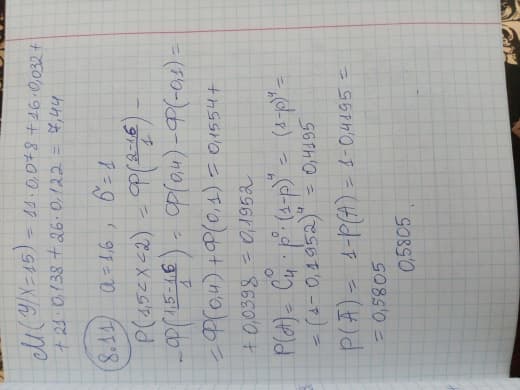 M(Y/X=15) = 11·0,078 + 16·0,032 +
+ 21·0,138 + 26·0,122 = 7,44
8.11 a=1,6 , σ=1
P(1,5<X<2) = Ф(2-1,6/1) -
- Ф(1,5-1,6/1) = Ф(0,4) - Ф(-0,1) =
= Ф(0,4) + Ф(0,1) = 0,1554 +
+ 0,0398 = 0,1952
P(A) = C₄⁰ · p⁰ · (1-p)⁴ = (1-p)⁴ =
= (1 - 0,1952)⁴ = 0,4195
P(Ā) = 1-P(A) = 1-0,4195 =
= 0,5805
0,5805.